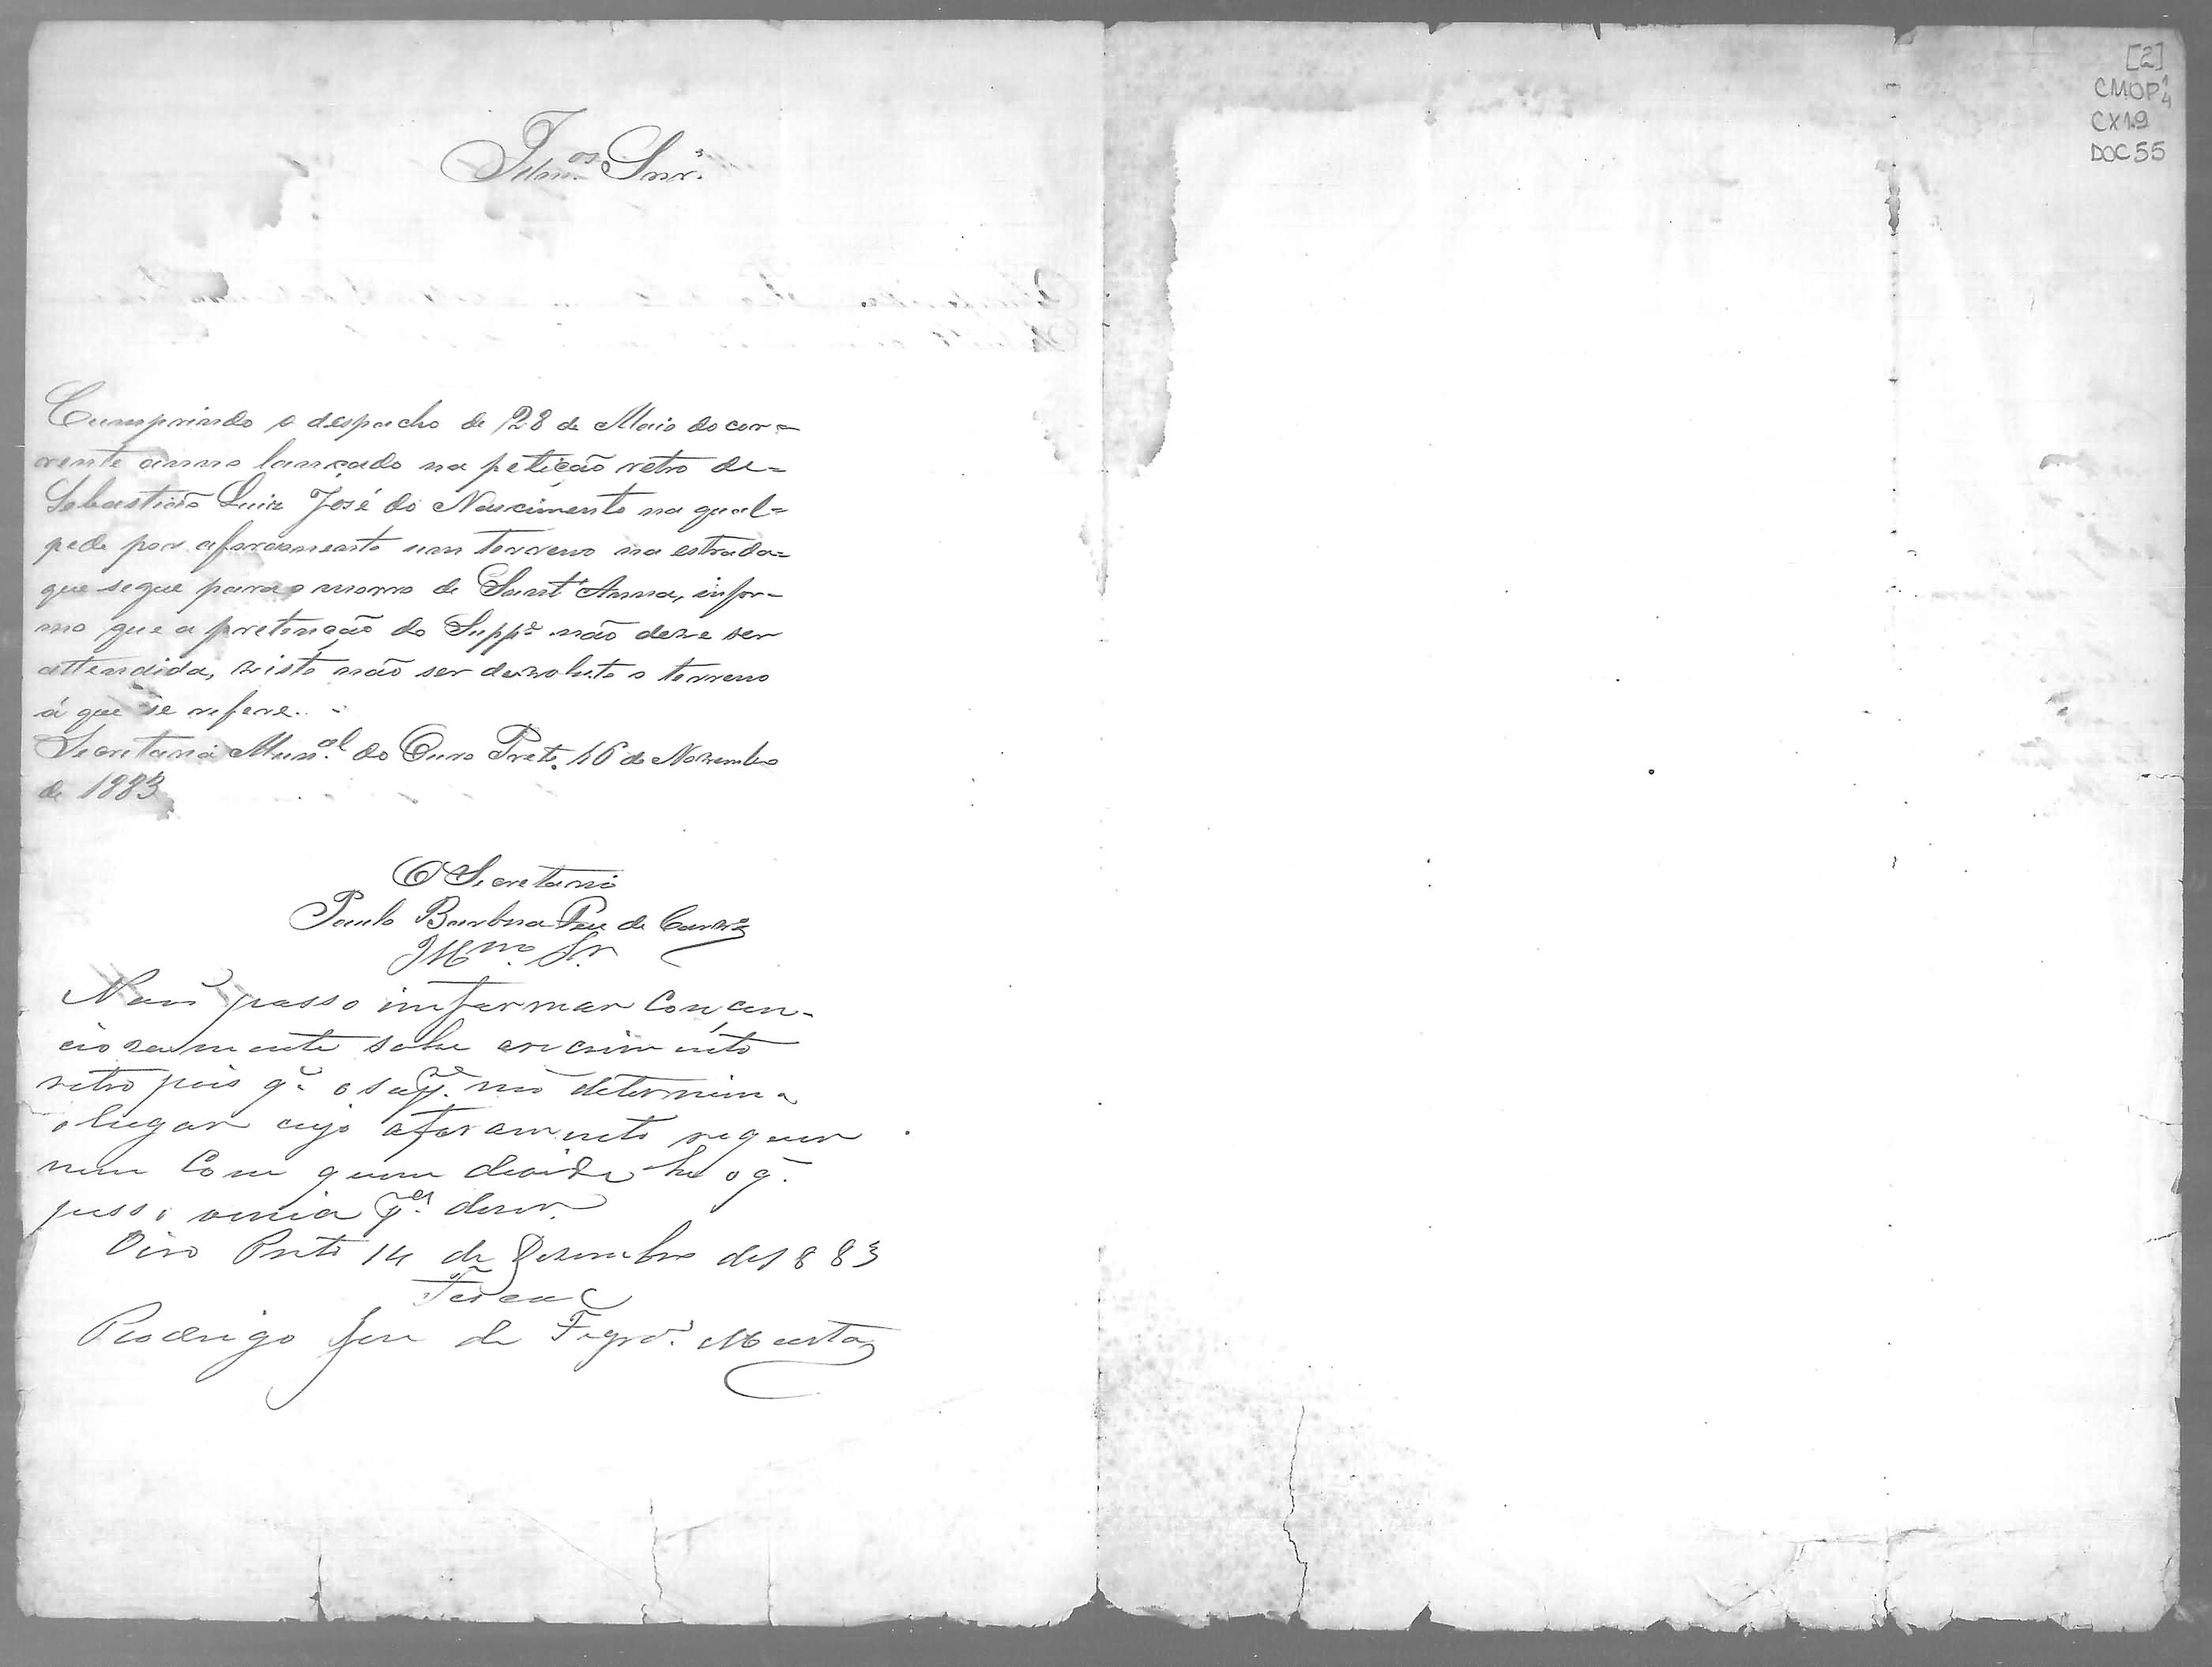 Illm.os Snr.s
Cumprindo o despacho de 28 de Maio do cor=
rente anno lançado na petição retro de=
Sebastião Luiz José do Nascimento na qual=
pede por aforamento um terreno na estrada=
que segue para o morro de Sant'Anna, infor-
mo que a pretenção do Supp.e não deve ser
attendida, visto não ser devoluto o terreno
á que se refere.
Secretaria Mun.al do Ouro Preto, 16 de Novembro
de 1883
O Secretario
Paulo Barbosa
Illm.o Sr.
Nam posso imformar Conçen-
ciozamente sobre
retro pois q.e o sup.e não determina
o lugar cujo aforamento requer
nem Com quem divide he o q.
posso dizer.
Oiro Preto 14 de Dezembro de 1883
Fiscal
Rodrigo José de Figrd.o Murta
[2]
CMOP 1/4
CX19
DOC 55